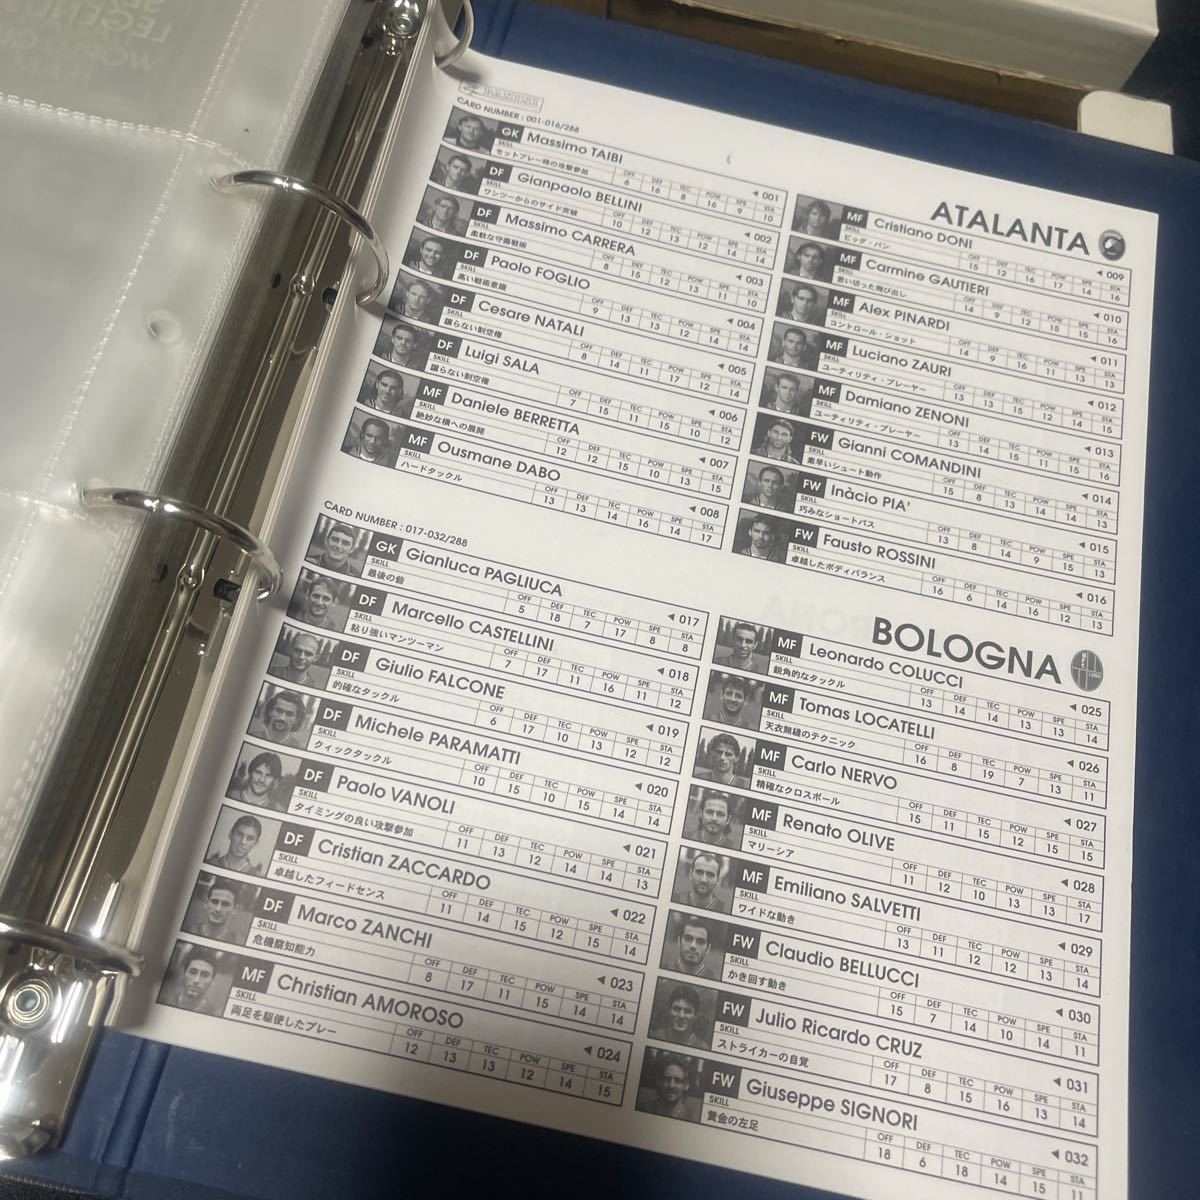 PANINI
CARD NUMBER : 001-016/288
ATALANTA
GK Massimo TAIBI ◀ 001
SKILL セットプレー時の攻撃参加
OFF DEF TEC POW SPE STA
6 16 8 16 9 10
DF Gianpaolo BELLINI ◀ 002
SKILL ワンツーからのサイド突破
OFF DEF TEC POW SPE STA
10 12 13 12 14 14
DF Massimo CARRERA ◀ 003
SKILL 柔軟な守備戦術
OFF DEF TEC POW SPE STA
8 15 12 13 11 10
DF Paolo FOGLIO ◀ 004
SKILL 高い戦術意識
OFF DEF TEC POW SPE STA
9 13 13 12 14 14
DF Cesare NATALI ◀ 005
SKILL 譲らない制空権
OFF DEF TEC POW SPE STA
8 14 11 17 12 14
DF Luigi SALA ◀ 006
SKILL 譲らない制空権
OFF DEF TEC POW SPE STA
7 15 11 15 10 12
MF Daniele BERRETTA ◀ 007
SKILL 絶妙な横への展開
OFF DEF TEC POW SPE STA
12 12 15 10 13 15
MF Ousmane DABO ◀ 008
SKILL ハードタックル
OFF DEF TEC POW SPE STA
13 13 14 16 14 17
MF Cristiano DONI ◀ 009
SKILL ビッグ・バン
OFF DEF TEC POW SPE STA
15 12 16 17 14 16
MF Carmine GAUTIERI ◀ 010
SKILL 思い切った飛び出し
OFF DEF TEC POW SPE STA
14 9 12 15 15 16
MF Alex PINARDI ◀ 011
SKILL コントロール・ショット
OFF DEF TEC POW SPE STA
14 9 16 11 13 13
MF Luciano ZAURI ◀ 012
SKILL ユーティリティ・プレーヤー
OFF DEF TEC POW SPE STA
13 13 15 12 14 15
MF Damiano ZENONI ◀ 013
SKILL ユーティリティ・プレーヤー
OFF DEF TEC POW SPE STA
13 14 15 11 15 16
FW Gianni COMANDINI ◀ 014
SKILL 素早いシュート動作
OFF DEF TEC POW SPE STA
15 8 13 14 14 13
FW Inàcio PIA' ◀ 015
SKILL 巧みなショートパス
OFF DEF TEC POW SPE STA
13 8 14 9 15 13
FW Fausto ROSSINI ◀ 016
SKILL 卓越したボディバランス
OFF DEF TEC POW SPE STA
16 6 14 16 12 13
CARD NUMBER : 017-032/288
BOLOGNA
GK Gianluca PAGLIUCA ◀ 017
SKILL 最後の砦
OFF DEF TEC POW SPE STA
5 18 7 17 8 8
DF Marcello CASTELLINI ◀ 018
SKILL 粘り強いマンツーマン
OFF DEF TEC POW SPE STA
7 17 11 16 11 12
DF Giulio FALCONE ◀ 019
SKILL 的確なタックル
OFF DEF TEC POW SPE STA
6 17 10 13 12 12
DF Michele PARAMATTI ◀ 020
SKILL クィックタックル
OFF DEF TEC POW SPE STA
10 15 10 15 14 14
DF Paolo VANOLI ◀ 021
SKILL タイミングの良い攻撃参加
OFF DEF TEC POW SPE STA
11 13 12 14 14 13
DF Cristian ZACCARDO ◀ 022
SKILL 卓越したフィードセンス
OFF DEF TEC POW SPE STA
11 14 15 12 15 14
DF Marco ZANCHI ◀ 023
SKILL 危機察知能力
OFF DEF TEC POW SPE STA
8 17 11 15 14 14
MF Christian AMOROSO ◀ 024
SKILL 両足を駆使したプレー
OFF DEF TEC POW SPE STA
12 13 13 12 14 15
MF Leonardo COLUCCI ◀ 025
SKILL 鋭角的なタックル
OFF DEF TEC POW SPE STA
13 14 14 13 13 14
MF Tomas LOCATELLI ◀ 026
SKILL 天衣無縫のテクニック
OFF DEF TEC POW SPE STA
16 8 19 7 13 11
MF Carlo NERVO ◀ 027
SKILL 精確なクロスボール
OFF DEF TEC POW SPE STA
15 11 15 12 15 15
MF Renato OLIVE ◀ 028
SKILL マリーシア
OFF DEF TEC POW SPE STA
11 12 10 13 13 17
MF Emiliano SALVETTI ◀ 029
SKILL ワイドな動き
OFF DEF TEC POW SPE STA
13 11 12 12 13 14
FW Claudio BELLUCCI ◀ 030
SKILL かき回す動き
OFF DEF TEC POW SPE STA
15 7 14 10 14 11
FW Julio Ricardo CRUZ ◀ 031
SKILL ストライカーの自覚
OFF DEF TEC POW SPE STA
17 8 15 16 13 14
FW Giuseppe SIGNORI ◀ 032
SKILL 黄金の左足
OFF DEF TEC POW SPE STA
18 6 18 14 15 12